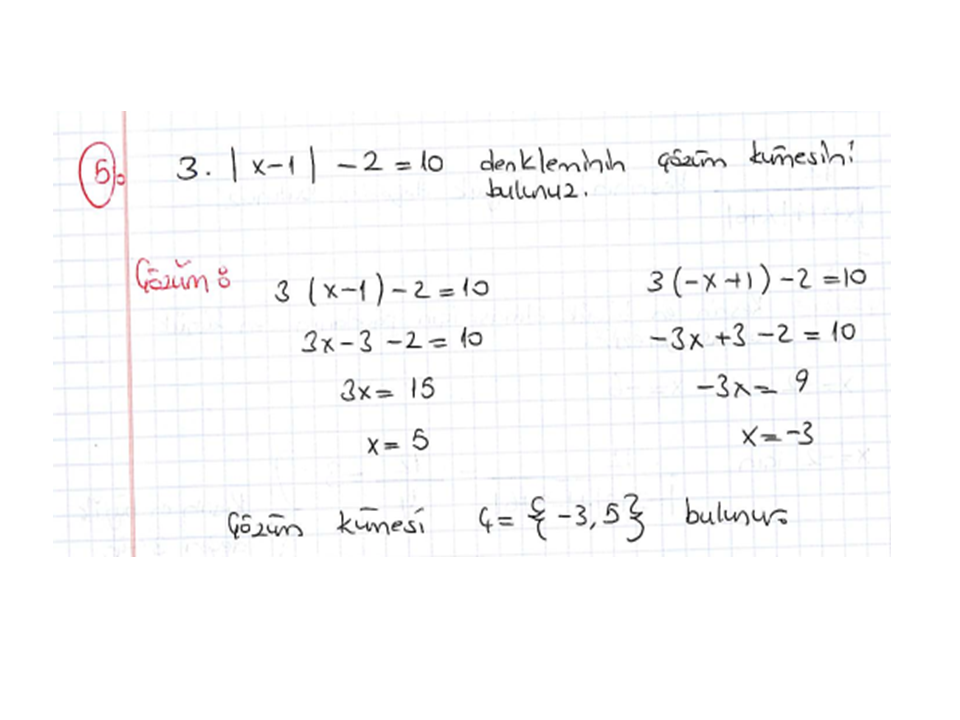 5. 3. |x-1| - 2 = 10 denkleminin çözüm kümesini
bulunuz.
Çözüm:
3 (x-1) - 2 = 10
3x - 3 - 2 = 10
3x = 15
x = 5
3 (-x+1) - 2 = 10
-3x + 3 - 2 = 10
-3x = 9
x = -3
Çözüm kümesi Ç = {-3, 5} bulunur.